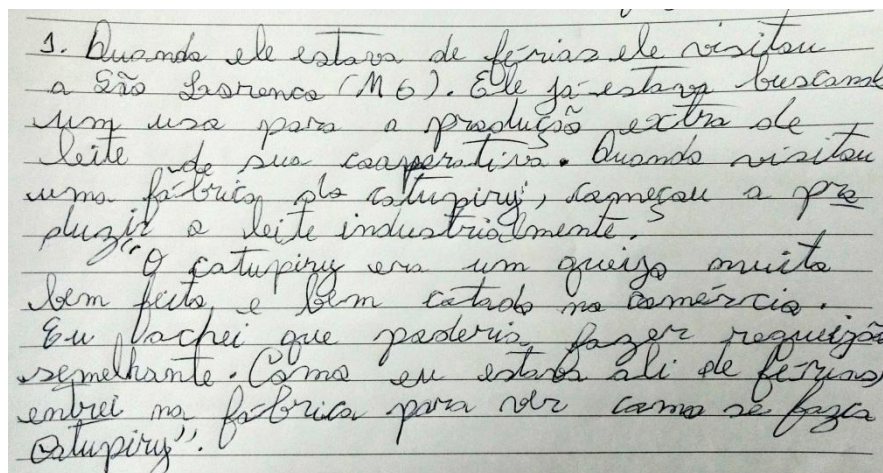 1. Quando ele estava de férias ele visitou
a São Lourenco (MG). Ele já estava buscando
um uso para a produção extra de
leite de sua cooperativa. Quando visitou
uma fábrica do catupiry, começou a pro
duzir o leite industrialmente.
"O catupiry era um queijo muito
bem feito e bem cotado no comércio.
Eu achei que poderia fazer requeijão
semelhante. Como eu estava ali de férias,
entrei na fábrica para ver como se fazia
catupiry".